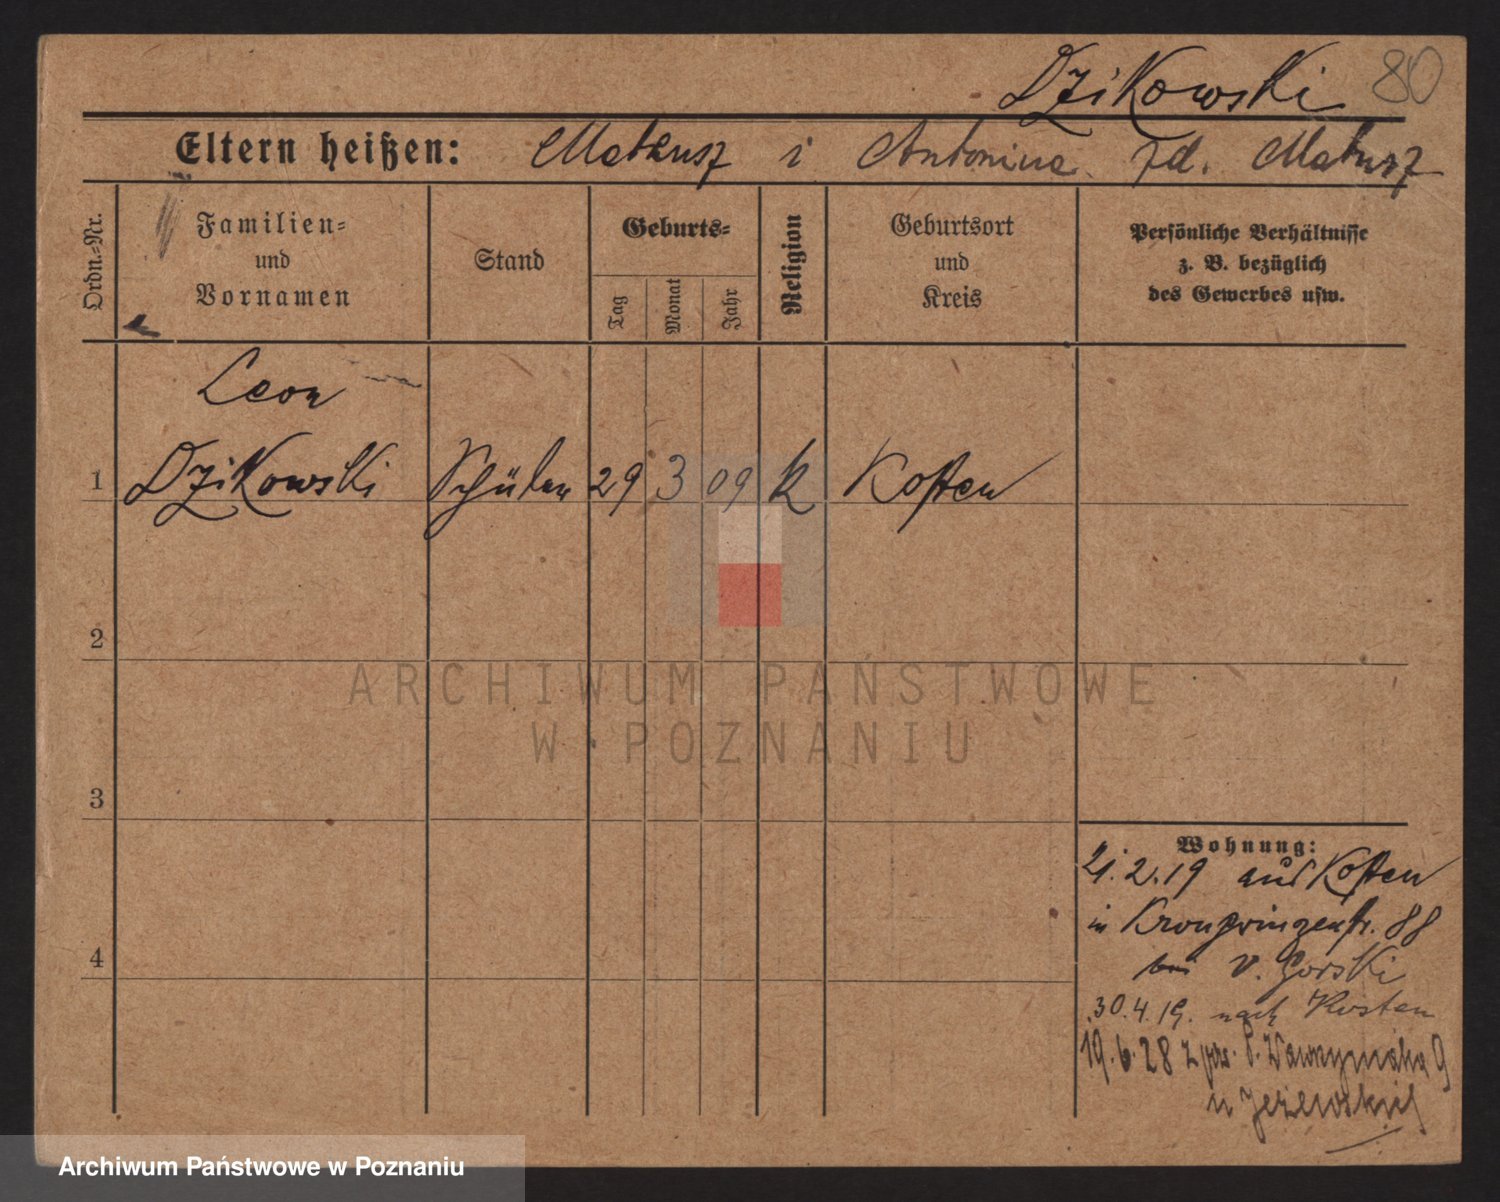 Dzikowski 80
Eltern heißen: Mateusz i Antonina zd. Matusz
Ordn.-Nr.
Familien-
und
Vornamen
Stand
Geburts-
Tag
Monat
Jahr
Religion
Geburtsort
und
Kreis
Persönliche Verhältnisse
z. B. bezüglich
des Gewerbes usw.
Leon
1 Dzikowski Schüler 29 3 09 k Kosten
2
3
4
Wohnung:
21.2.19 aus Kosten
in Kronprinzenstr. 88
bei v. Gorski
30.4.19. nach Kosten
19.6.28 z
u
ARCHIWUM PAŃSTWOWE
W POZNANIU
Archiwum Państwowe w Poznaniu